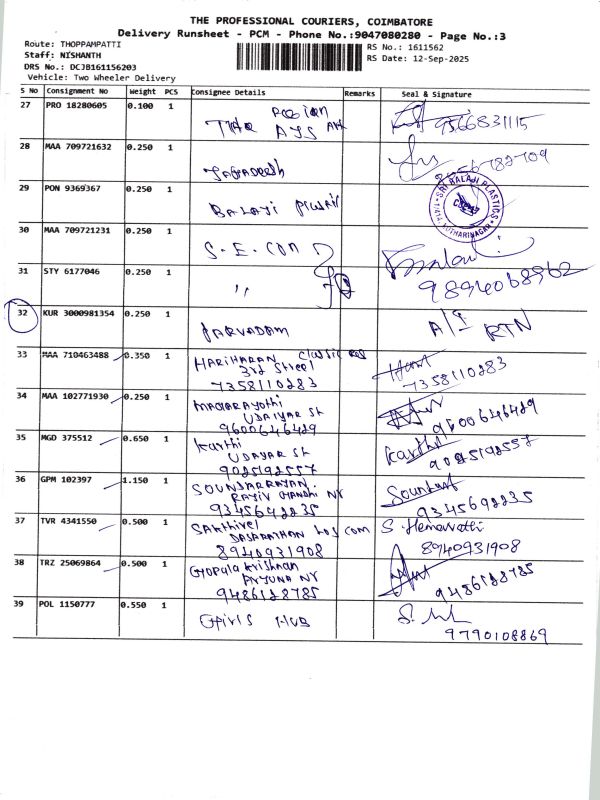 THE PROFESSIONAL COURIERS, COIMBATORE
Delivery Runsheet - PCM - Phone No.:9047080280 - Page No.:3
Route: THOPPAMPATTI RS No.: 1611562
Staff: NISHANTH RS Date: 12-Sep-2025
DRS No.: DCJB161156203
Vehicle: Two Wheeler Delivery
S No Consignment No Weight PCS Consignee Details Remarks Seal & Signature
27 PRO 18280605 0.100 1 9566831115
28 MAA 709721632 0.250 1 Jagadeesh
29 PON 9369367 0.250 1 BALAJI SRI BALAJI PLASTICS
30 MAA 709721231 0.250 1 S.E.CON
31 STY 6177046 0.250 1 ,, 9894068962
32 KUR 3000981354 0.250 1 PARVADAM RTN
33 MAA 710463488 0.350 1 HARIHARAN
3rd Street
7358110283 7358110283
34 MAA 102771930 0.250 1
UDAIYAR St
9600646429 9600646429
35 MGD 375512 0.650 1 Karthi Karthi
UDAYAR St
9025192557 9025192557
36 GPM 102397 1.150 1 SOUNDARRAYAN
RAJIV GANDHI NR
9345692235 9345692235
37 TVR 4341550 0.500 1 SAKTHIVEL S. Hemavathi
8940931908 8940931908
38 TRZ 25069864 0.500 1 Gopalakrishnan
9486128785 9486128785
39 POL 1150777 0.550 1 Girls Hub
9790108869